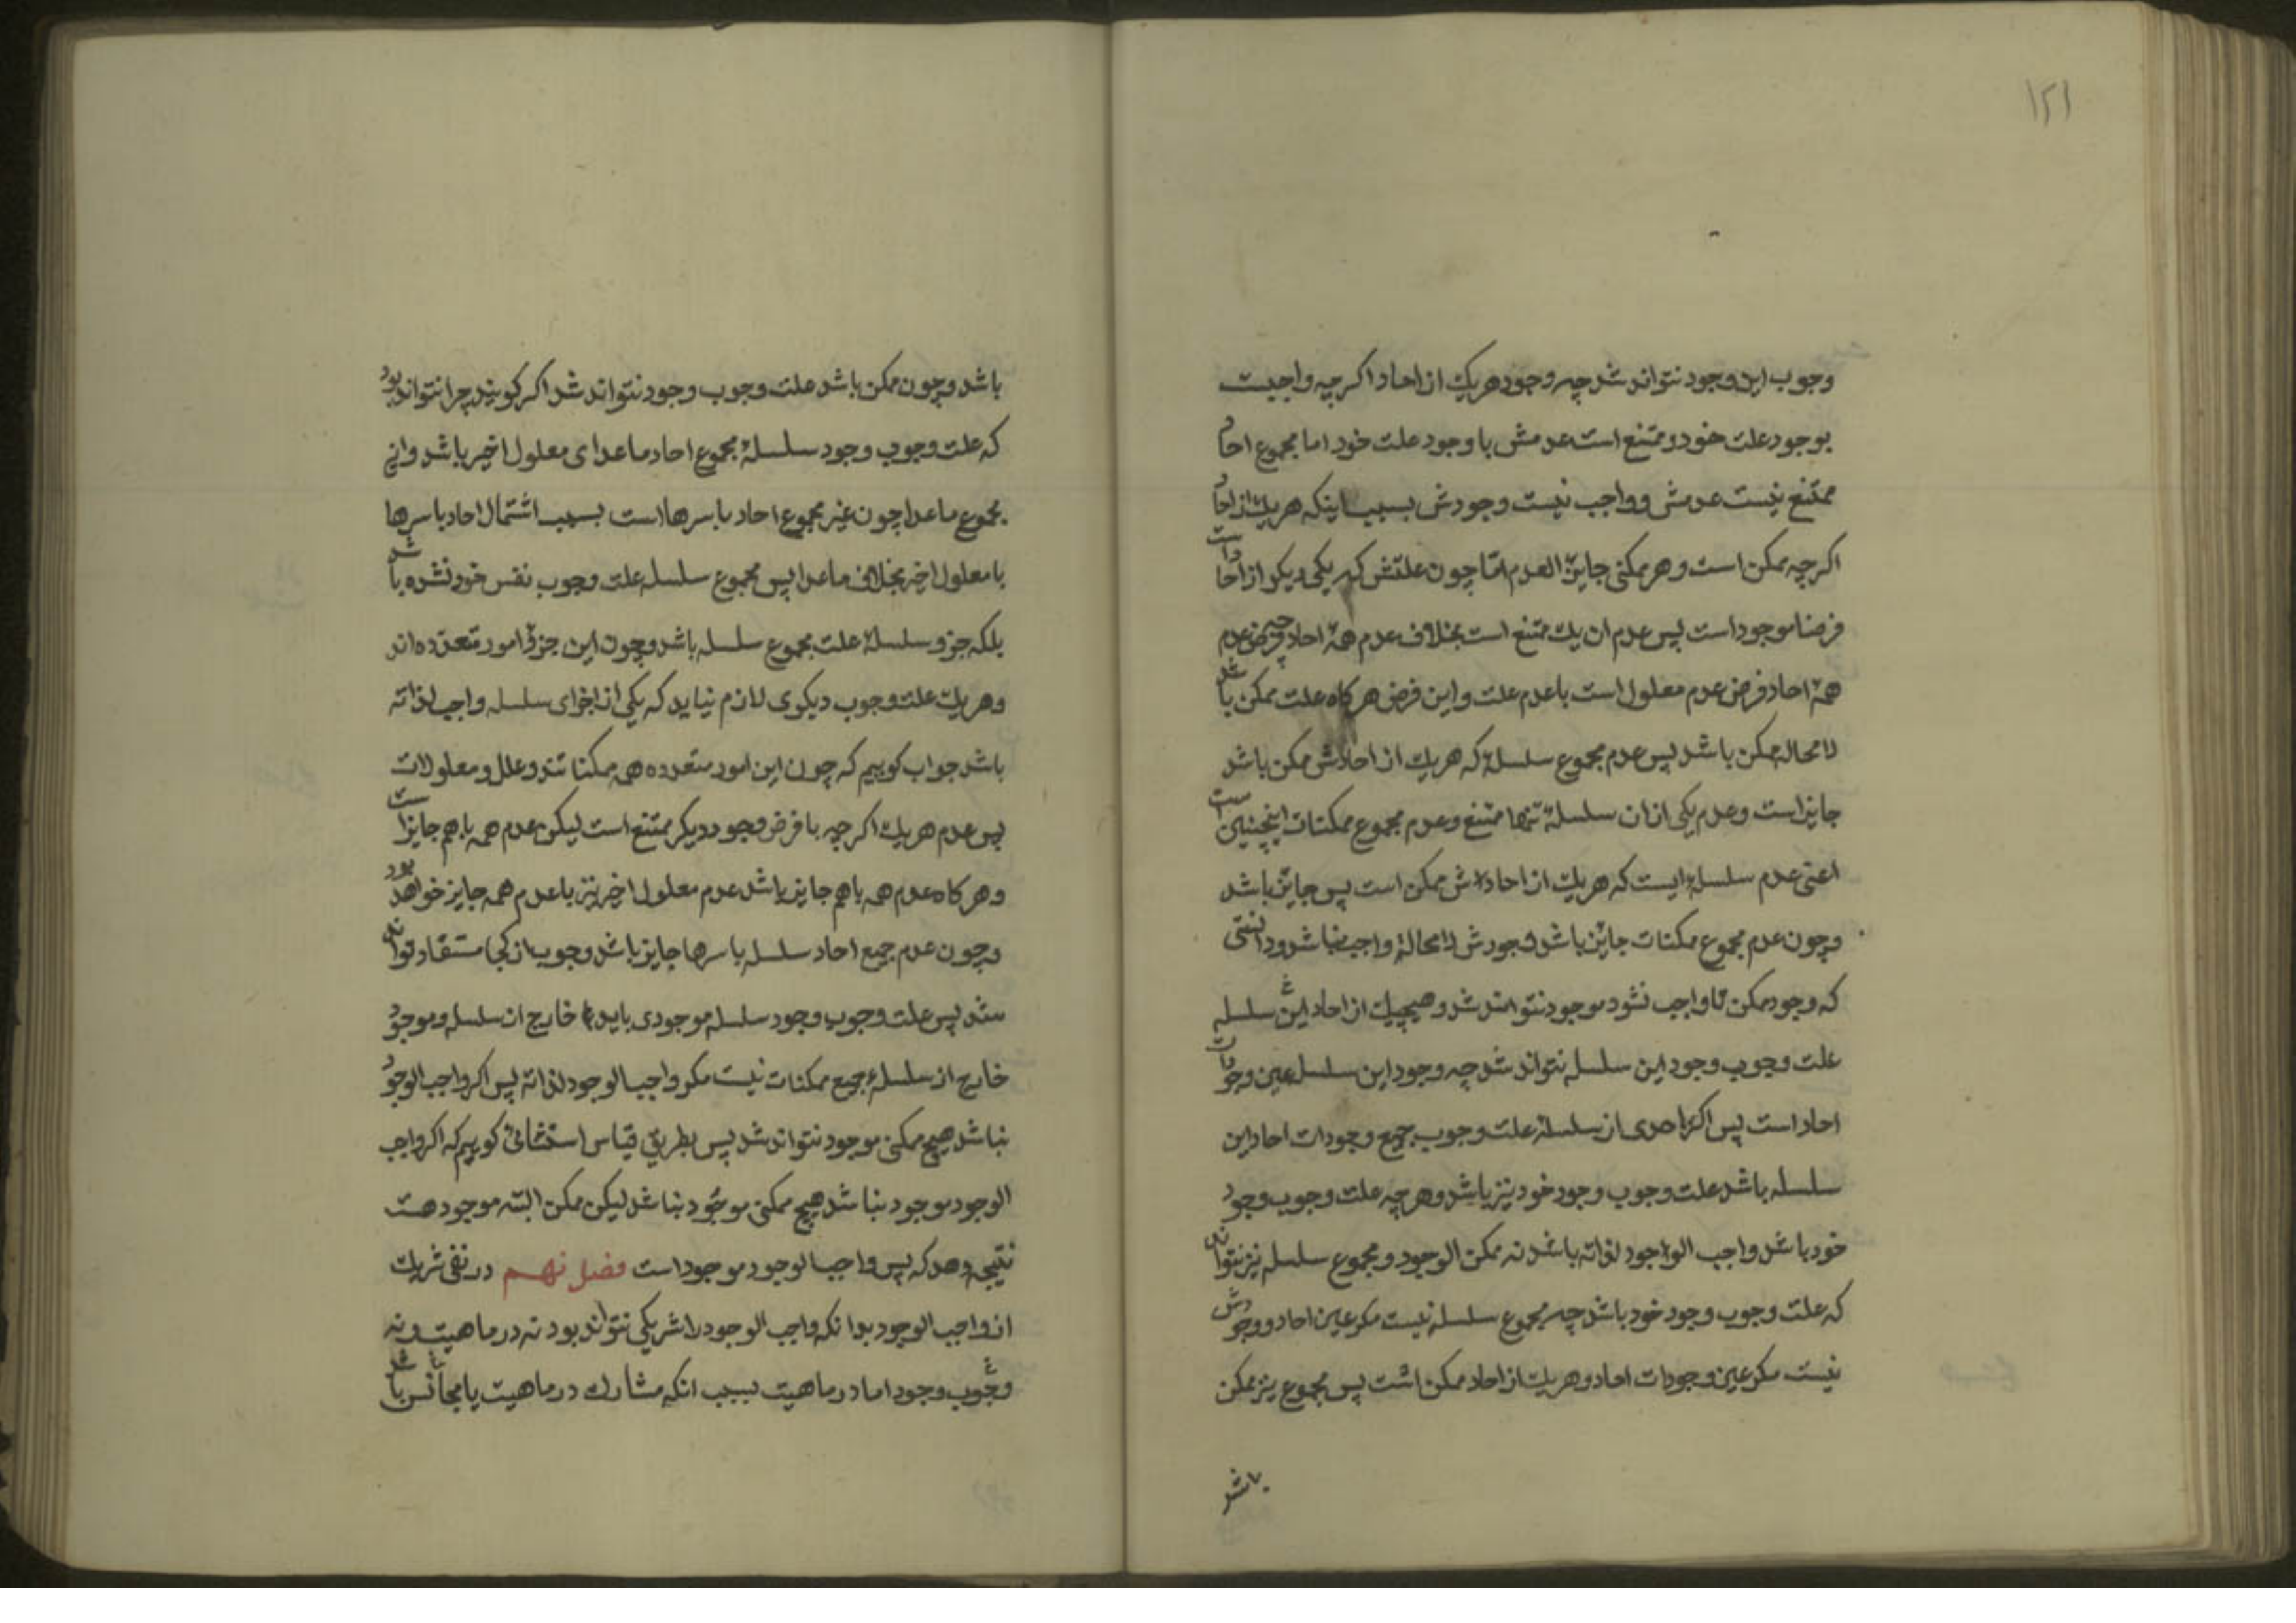 ۱۲۱
وجوب این وجود نتواند شد چه وجود هریک از احاد اکرچه واجبست
بوجود علت خود و ممتنع است عدمش با وجود علت خود اما مجموع احاد
ممتنع نیست عدمش و واجب نیست وجودش بسبب اینکه هریک از احاد
اکرچه ممکن است و هر ممکنی جایز العدم امّا چون علتش که یکی دیکر از احاد است
فرضا موجود است پس عدم ان یک ممتنع است بخلاف عدم همهٔ احاد چه فرض عدم
همهٔ احاد فرض عدم معلول است با عدم علت و این فرض هرکاه علت ممکن باشد
لا محاله ممکن باشد پس عدم مجموع سلسلهٔ که هریک از احادش ممکن باشد
جایز است و عدم یکی از ان سلسلهٔ تنها ممتنع و عدم مجموع ممکنات اینچنین است
اعنی عدم سلسلهٔ ایست که هریک از احادش ممکن است پس جایز باشد
وچون عدم مجموع ممکنات جایز باشد وجودش لا محالهٔ واجب نباشد و دانستی
که وجود ممکن تا واجب نشود موجود نتواند شد و هیچیک از احاد این سلسله
علت وجوب وجود این سلسله نتواند شد چه وجود این سلسله عین وجودات
احاد است پس اکر احدی از سلسلهٔ علت وجوب جمیع وجودات احاد این
سلسله باشد علت وجوب وجود خود نیز باشد و هرچه علت وجوب وجود
خود باشد واجب الوجود لذاته باشد نه ممکن الوجود و مجموع سلسله نیز نتواند
که علت وجوب وجود خود باشد چه مجموع سلسله نیست مکر عین احاد و وجودش
نیست مکر عین وجودات احاد و هریک از احاد ممکن است پس مجموع نیز ممکن
باشد
باشد وچون ممکن باشد علت وجوب وجود نتواند شد اکر کویند چرا نتواند بود
که علت وجوب وجود سلسلهٔ مجموع احاد ماعدای معلول اخیر باشد و این
مجموع ماعدا چون غیر مجموع احاد باسرها است بسبب اشتمال احاد باسرها
با معلول اخیر بخلاف ماعدا پس مجموع سلسله علت وجوب نفس خود نشده باشد
بلکه جزو سلسلهٔ علت مجموع سلسله باشد وچون این جزو امور متعدده اند
وهریک علت وجوب دیکری لازم نیاید که یکی از اجزای سلسله واجب لذاته
باشد جواب کوییم که چون این امور متعدده همه ممکناتند و علل و معلولات
پس عدم هریک اکرچه با فرض وجود دیکر ممتنع است لیکن عدم همه باهم جایز است
وهرکاه عدم همه باهم جایز باشد عدم معلول اخیر نیز با عدم همه جایز خواهد بود
وچون عدم جمیع احاد سلسله باسرها جایز باشد وجوب از کجا مستفاد تواند
شد پس علت وجوب وجود سلسله موجودی باید خارج از سلسله و موجود
خارج از سلسلهٔ جمیع ممکنات نیست مکر واجب الوجود لذاته پس اکر واجب الوجود
نباشد هیچ ممکنی موجود نتواند شد پس بطریق قیاس استثنائی کوییم که اکر واجب
الوجود موجود نباشد هیچ ممکنی موجود نباشد لیکن ممکن البته موجود هست
نتیجه دهد که پس واجب الوجود موجود است فصل نهم در نفی شریک
از واجب الوجود بدانکه واجب الوجود را شریکی نتواند بود نه در ماهیت ونه
وجوب وجود اما در ماهیت بسبب انکه مشارک در ماهیت یا مجانس باشد